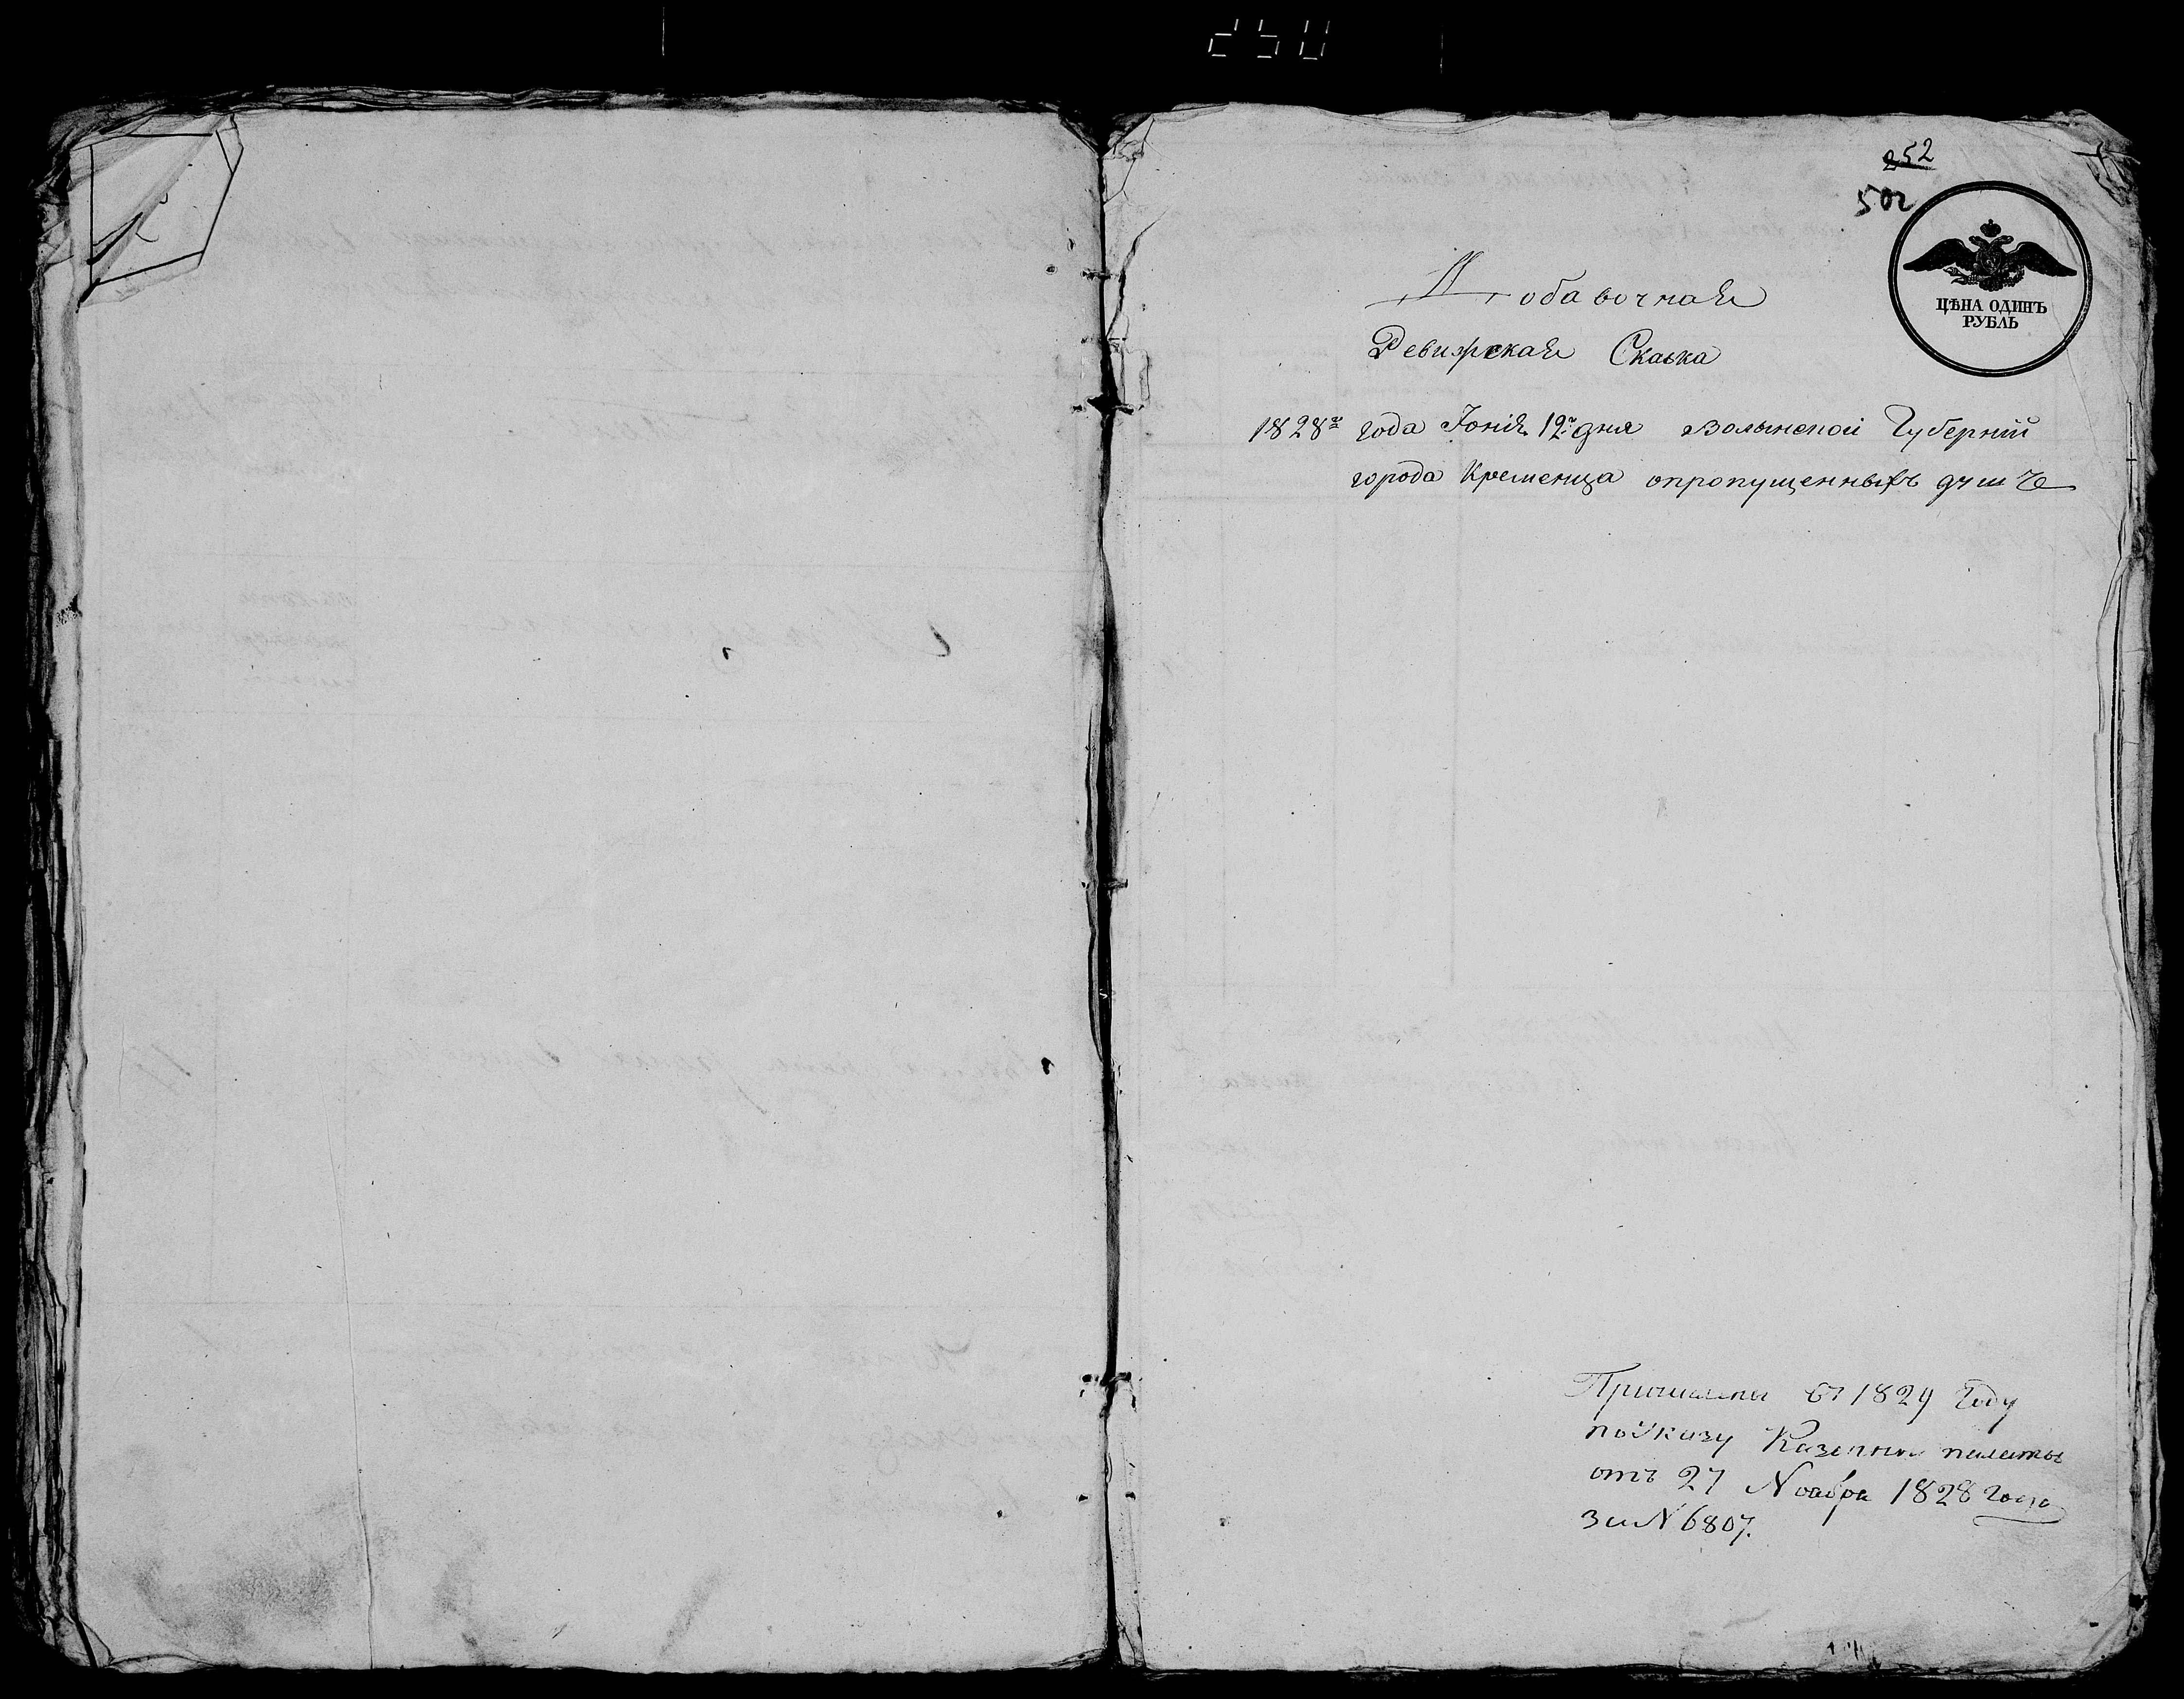 250
252
502
ЦѢНА ОДИНЪ
РУБЛЬ
Добавочная
Ревижская Скаска
1828го года Іюнія 12го дня Волынской Губерніи
города Кременца опропущенныхъ душѣ
Причислены въ 1829 Году
по Указу Казенной палаты
отъ 27 Ноабра 1828 года
за N 6807.